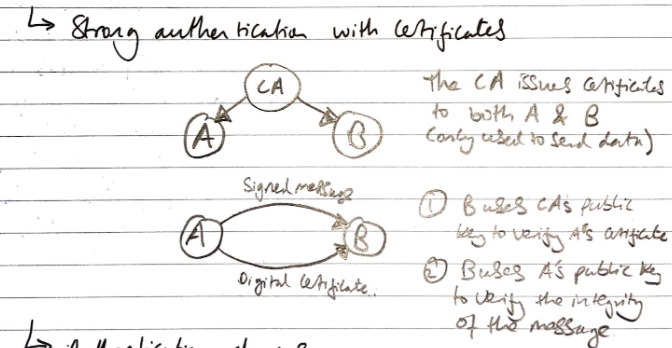 ↳ Strong authentication with certificates
CA
A
B
The CA issues certificates
to both A & B
(only used to send data)
Signed message
A
B
Digital Certificate.
① B uses CA's public
key to verify A's certificate
② B uses A's public key
to verify the integrity
of the message